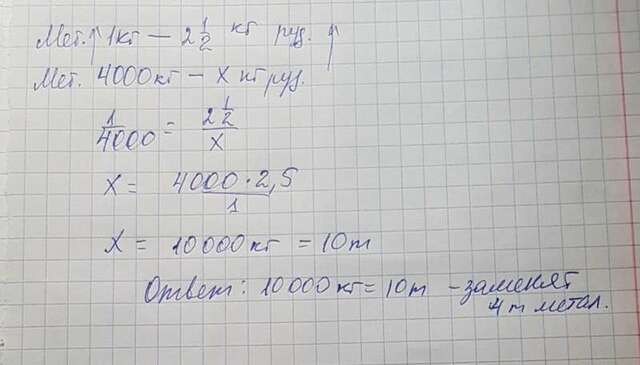 Мет.↑ 1кг — 2 1/2 кг руз. ↑
Мет. 4000кг — х кг руз.
1/4000 = 2 1/2 / х
х = 4000·2,5 / 1
х = 10000кг = 10т
Ответ: 10000кг = 10т - заменят
4т метал.